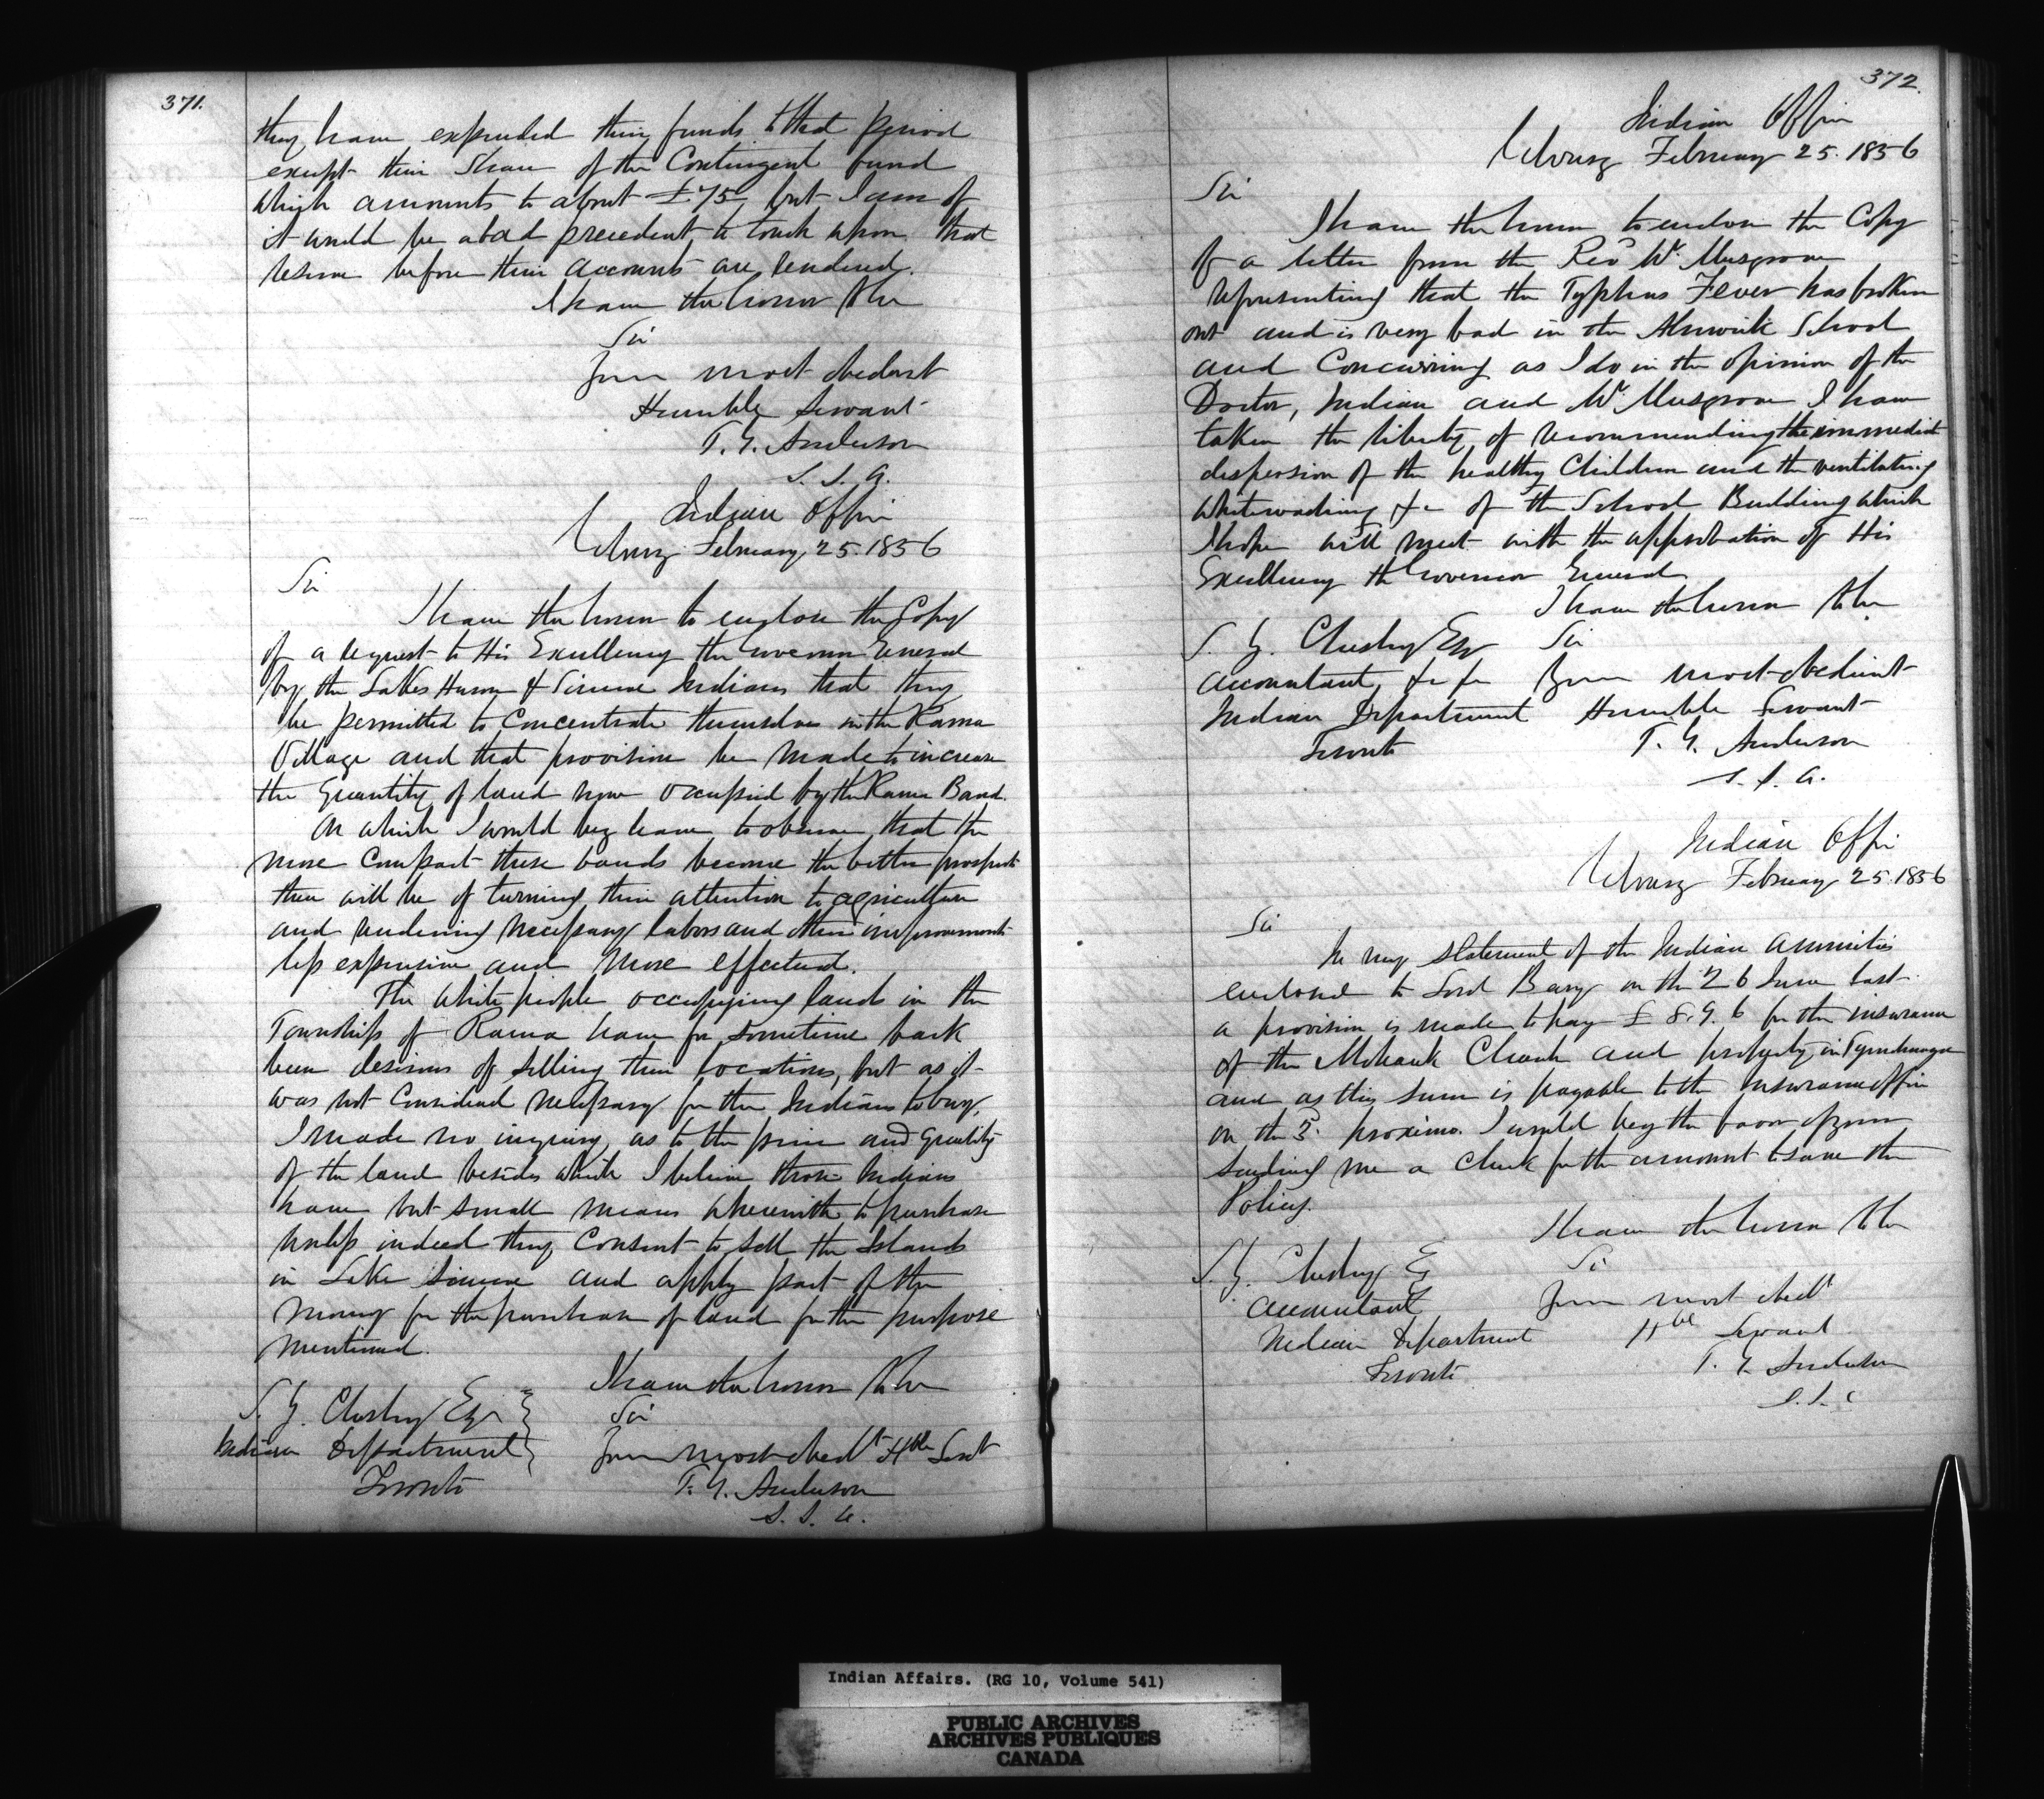 371.
they have expended their funds to that period
except their Share of the Contingent fund
which amounts to about £75, but I am of
it would be a bad precedent to touch upon that
reserve before their accounts are rendered.
I have the honor to be
Sir
Your most obedient
Humble Servant
T. G. Anderson
S. I. A.
Indian Office
Cobourg February 25. 1856
Sir
I have the honor to enclose the Copy
of a request to His Excellency the Governor General
by the Lakes Huron & Simcoe Indians that they
be permitted to Concentrate themselves in the Rama
Village and that provision be made to increase
the Quantity of land now occupied by the Rama Band.
On which I would beg leave to observe that the
more Compact these bands become the better prospect
there will be of turning their attention to agriculture
and rendering necessary labors and other improvements
less expensive and more effectual.
The White people occupying lands in the
Township of Rama have for sometime back
been desirous of selling their locations, but as it
was not Considered necessary for the Indians to buy,
I made no inquiry as to the price and quality
of the land besides which I believe those Indians
have but small means wherewith to purchase
unless indeed they Consent to sell the Islands
in Lake Simcoe and apply part of the
money for the purchase of land for the purpose
mentioned.
I have the honor to be
Sir
Your most obedt Hble Servt
T. G. Anderson
S. I. A.
S. Y. Chesley Esqr
Indian Department
Toronto
372.
Indian Office
Cobourg February 25. 1856
Sir
I have the honor to enclose the Copy
of a letter from the Revd Mr. Musgrove
representing that the Typhus Fever has broken
out and is very bad in the Alnwick School
and Concurring as I do in the opinion of the
Doctor, Indian and Mr. Musgrove I have
taken the liberty of recommending the immediate
dispersion of the healthy Children and the ventilating
whitewashing &c of the School Building which
I hope will meet with the approbation of His
Excellency the Governor General
I have the honor to be
Sir
Your most obedient
Humble Servant
T. G. Anderson
S. I. A.
S. Y. Chesley Esqr
Accountant &c &c
Indian Department
Toronto
Indian Office
Cobourg February 25. 1856
Sir
In my statement of the Indian Annuities
enclosed to Lord Bury on the 26 June last
a provision is made to pay £ 8. 9. 6 for the insurance
of the Mohawk Church and property in Tyendinaga
and as this sum is payable to the Insurance Office
on the 3. proximo. I would beg the favor of your
sending me a Check for the amount to save the
Policy.
I have the honor to be
Sir
Your most obedt
Hble Servant
T. G. Anderson
S. I. A
S. Y. Chesley Es
Accountant
Indian Department
Toronto
Indian Affairs. (RG 10, Volume 541)
PUBLIC ARCHIVES
ARCHIVES PUBLIQUES
CANADA